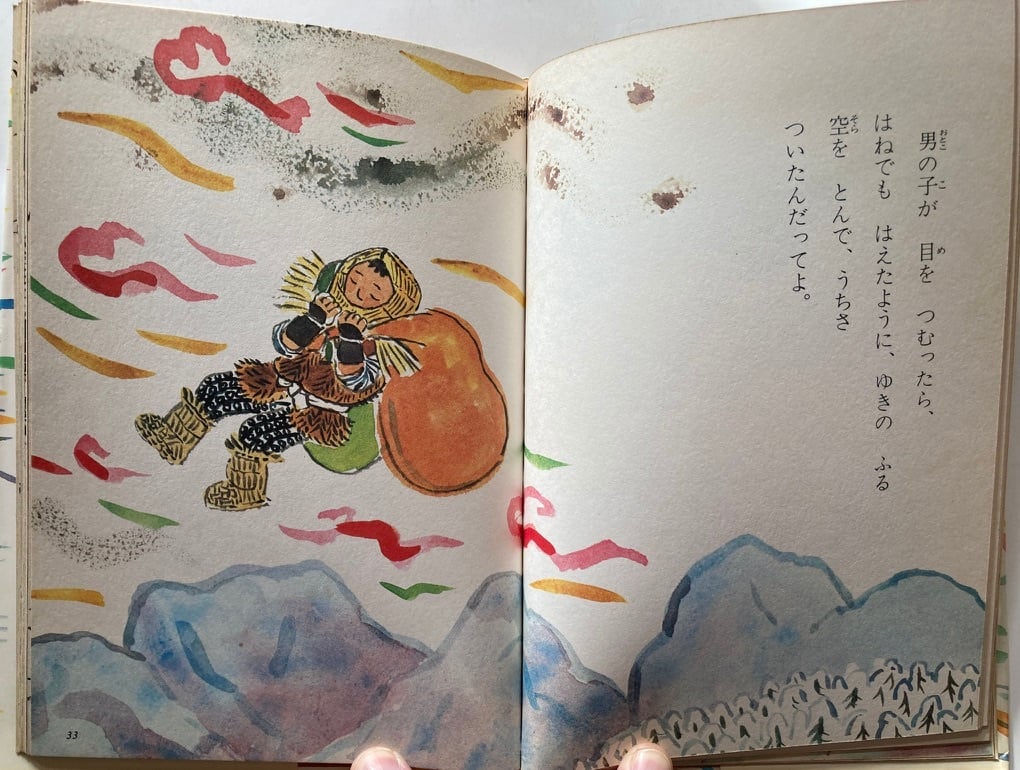 男の子が　目を　つむったら、
はねでも　はえたように、ゆきの　ふる
空を　とんで、うちさ
ついたんだってよ。
おとこ
こ
め
そら
33